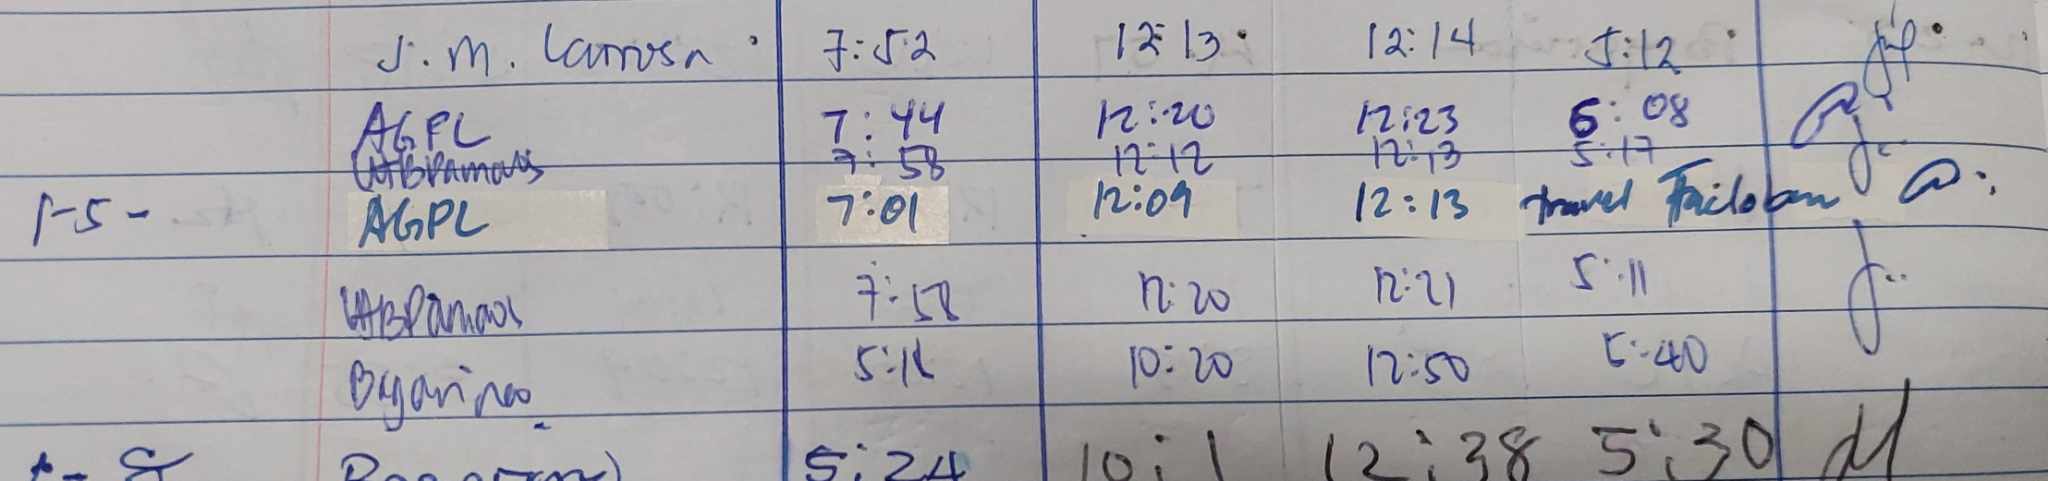 J. M. Larrosa 7:52 12:13 12:14 5:12
AGPL 7:44 12:20 12:23 6:08
7:58 12:12 12:13 5:17
1-5- AGPL 7:01 12:09 12:13 travel Tacloban
7:58 12:20 12:21 5:11
10:20 12:50 5:40
5:24 10:1 12:38 5:30